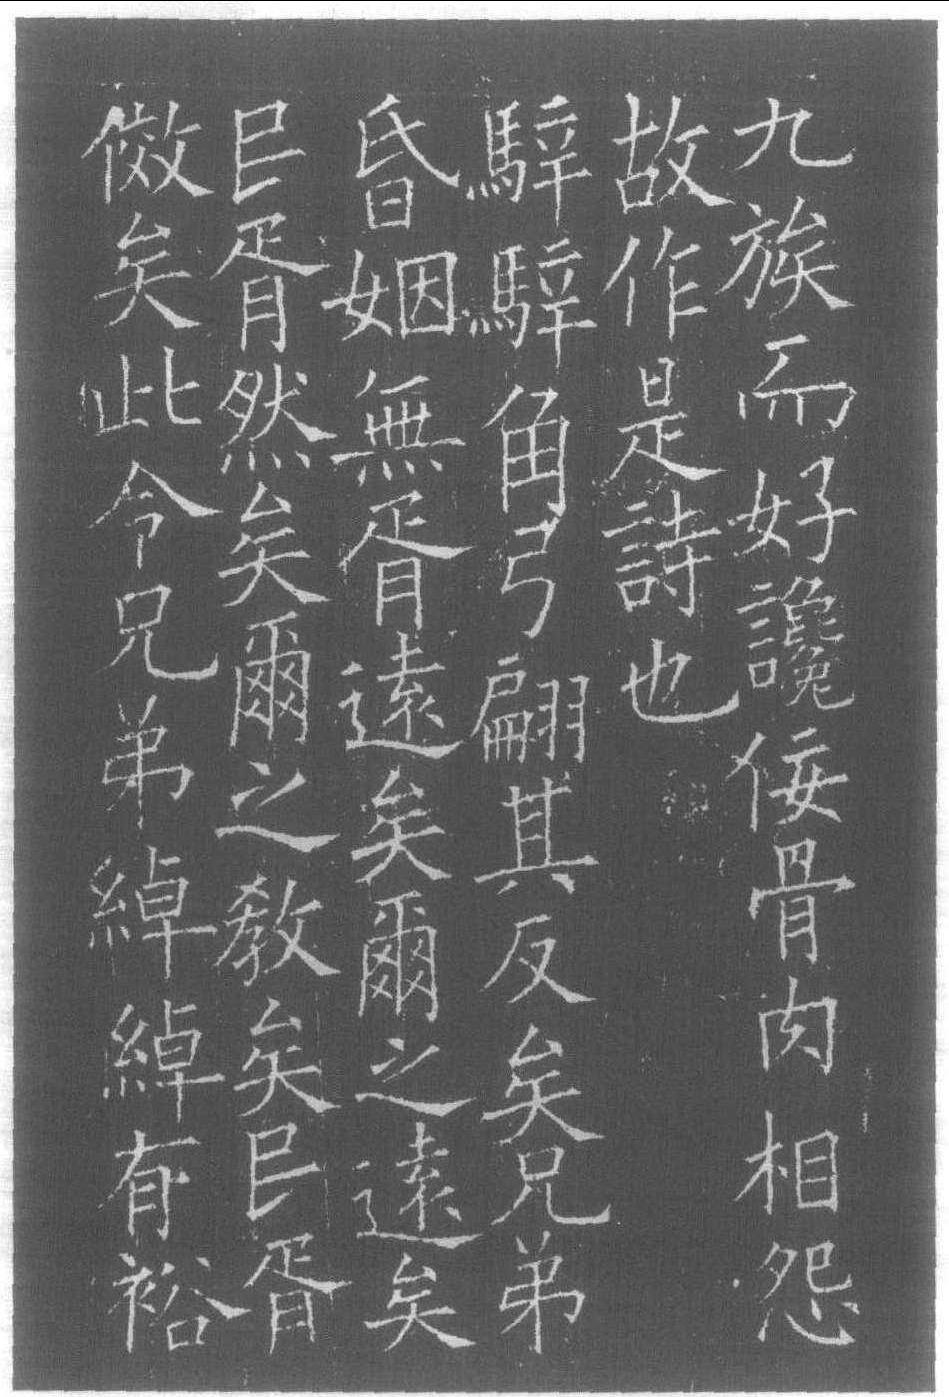 九族而好讒佞骨肉相怨
故作是詩也
騂騂角弓翩其反矣兄弟
昏姻無胥遠矣爾之遠矣
民胥然矣爾之教矣民胥
傚矣此令兄弟綽綽有裕